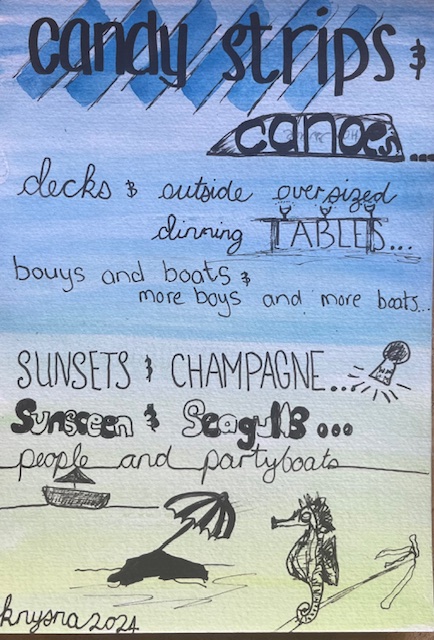 candy strips &
canoes...
decks & outside oversized
dinning TABLES...
bouys and boats &
more boys and more boats...
SUNSETS & CHAMPAGNE...
Sunsceen & Seagulls...
people and partyboats
knysna 2024